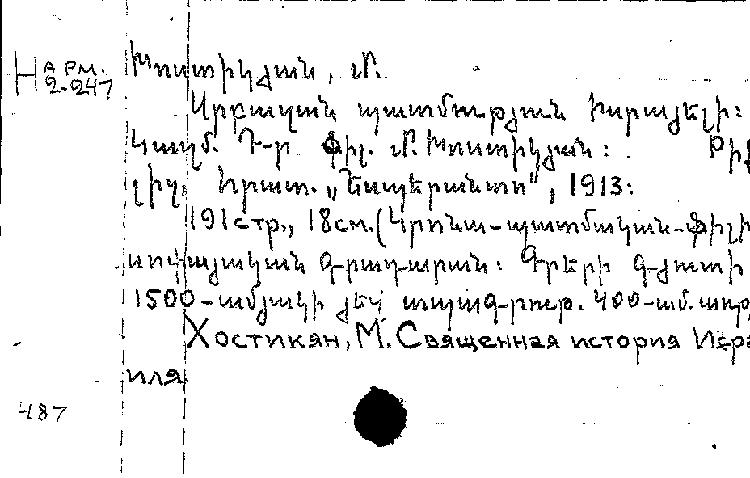 Н А РМ. 2-247
Խոստիկյան, Մ.
Սրբազան պատմություն Իսրայելի:
Կազմ. Դ-ր Փիլ. Մ. Խոստիկյան: Թիֆ
լիզ, Հրատ. „Էսպերանտո", 1913:
191 стр., 18 см. (Կրոնա-պատմական-Փիլի
սոփայական գրադարան: Գրերի գյուտի
1500-ամյակի և հայ տպագրութ. 400-ամ. առթ
Хостикян, М. Священная история Изра
иля
487